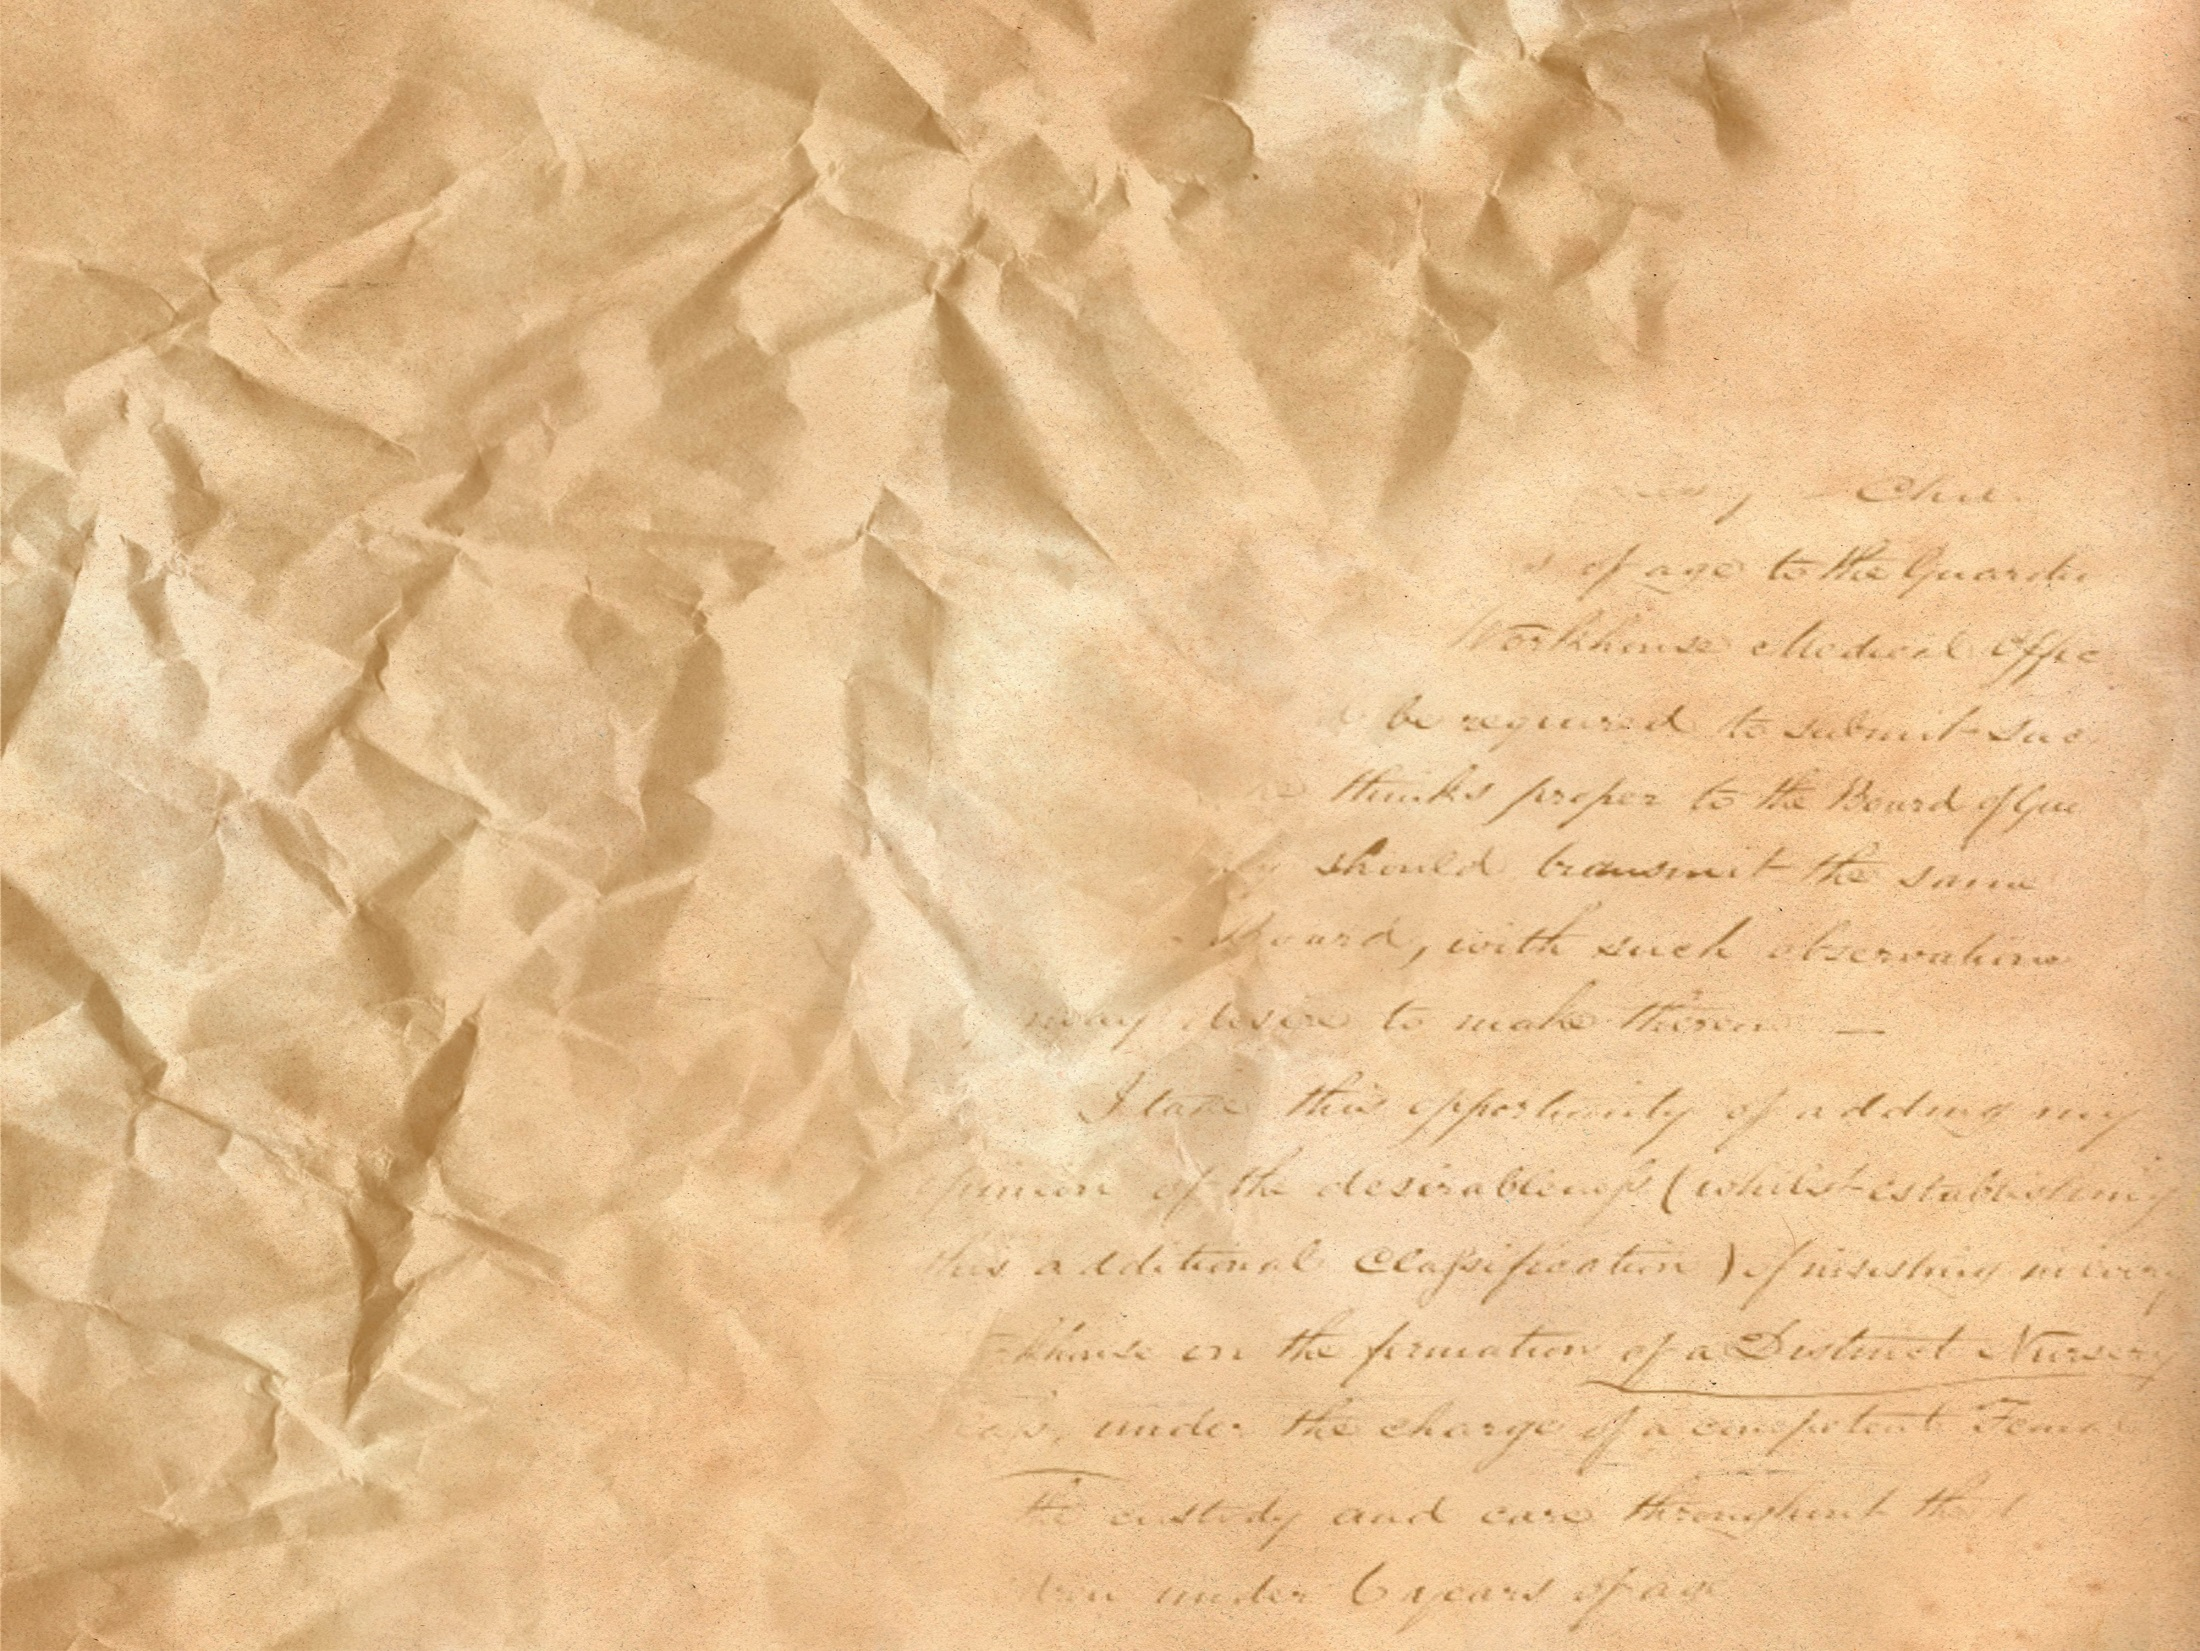 of age to the Guardia
Workhouse Medical Offic
be required to submit suc
thinks proper to the Board of Gua
should transmit the same
Board, with such observations
may desire to make thereon —
I take this opportunity of adding my
opinion of the desirableness (whilst establishing
this additional Classification) of insisting in every
khouse on the formation of a Distinct Nursery
under the charge of a competent Fema
the custody and care throughout the d
under 6 years of age